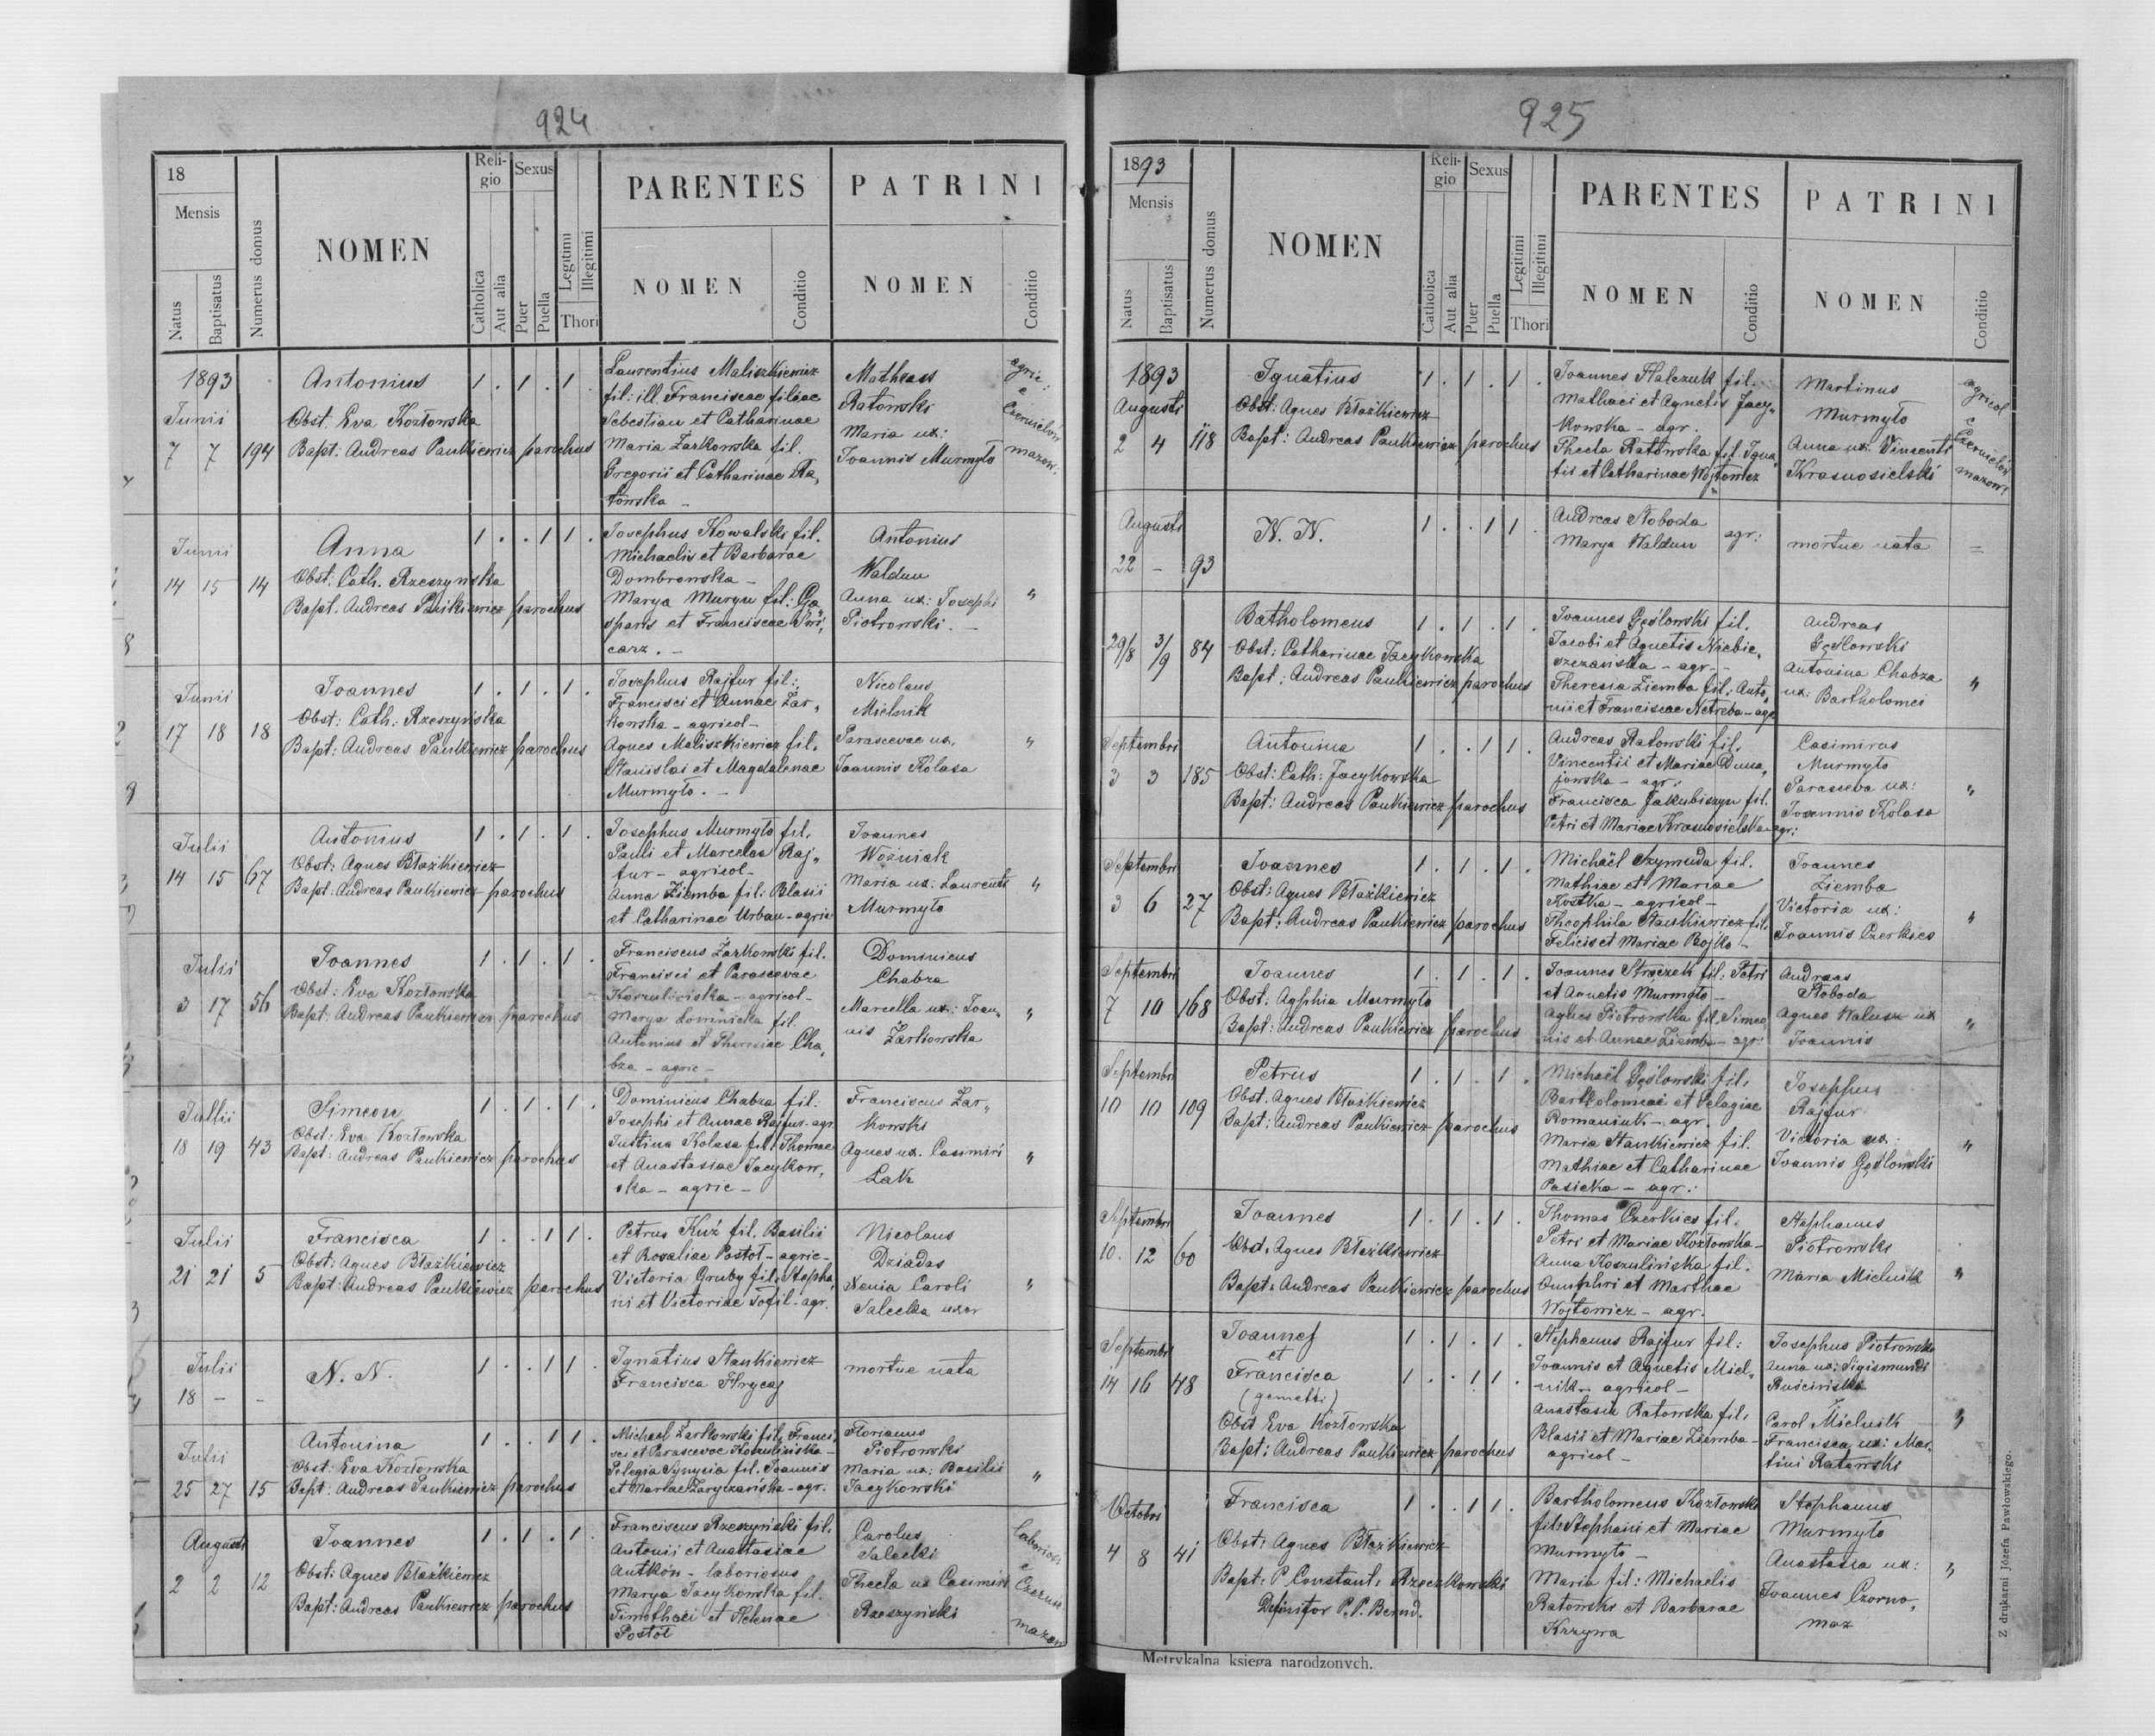 924
18
Mensis
Natus
Baptisatus
Numerus domus
NOMEN
Reli-
gio
Catholica
Aut alia
Sexus
Puer
Puella
Legitimi
Illegitimi
Thori
PARENTES
NOMEN
Conditio
PATRINI
NOMEN
Conditio
1893
Junii
7 7 194
Antonius
Obst. Eva Kozłowska
Bapt: Andreas Pankiewicz parochus
1 . 1 . 1 .
Laurentius Maliszkiewicz
fil: ill. Franciscae filiae
Sebestiani et Catharinae
Maria Żarkowska fil.
Gregorii et Catharinae Ra„
towska –
Matheas
Ratowski
Maria ux:
Joannis Murmyło
agric.
mazow.
Junii
14 15 14
Anna
Obst: Cath. Rzeszyńska
Bapt. Andreas Pankiewicz parochus
1 . . 1 1 .
Josephus Kowalski fil.
Michaelis et Barbarae
Dombrowska –
Marya Muryn fil: Ga„
sparis et Franciscae
carz. –
Antonius
Waldun
Anna ux: Josephi
Piotrowski. –
"
Junii
17 18 18
Joannes
Obst: Cath: Rzeszyńska
Bapt: Andreas Pankiewicz parochus
1 . 1 . 1 .
Josephus Rajfur fil:
Francisci et Annae Żar„
kowska – agricol –
Agnes Maliszkiewicz fil.
Stanislai et Magdalenae
Murmyło. –
Nicolaus
Mielnik
Parascevae ux.
Joannis Kolasa
"
Julii
14 15 67
Antonius
Obst: Agnes Błażkiewicz
Bapt: Andreas Pankiewicz parochus
1 . 1 . 1 .
Josephus Murmyło fil.
Pauli et Marcelae Raj„
fur – agricol –
Anna Ziemba fil: Blasii
et Catharinae Urban – agric
Joannes
Woźniak
Maria ux: Laurenti
Murmyło
"
Julii
3 17 56
Joannes
Obst: Eva Kozłowska
Bapt: Andreas Pankiewicz parochus
1 . 1 . 1 .
Franciscus Żarkowski fil.
Francisci et Parascevae
Koszulińska – agricol –
Marya Łowinicka fil.
Antonius et Theresiae Cha„
bza – agric –
Dominicus
Chabza
Marcella ux: Joan„
nis Żarkowska
"
Jullii
18 19 43
Simeon
Obst: Eva Kozłowska
Bapt: Andreas Pankiewicz parochus
1 . 1 . 1 .
Dominicus Chabza fil:
Josephi et Annae Rajfur – agr.
Justina Kolasa fil: Thomae
et Anastasiae Jacykow„
ska – agric –
Franciscus Żar„
kowski
Agnes ux. Casimiri
Łak
"
Julii
21 21 5
Francisca
Obst: Agnes Błażkiewicz
Bapt: Andreas Pankiewicz parochus
1 . . 1 1 .
Petrus Kuź fil. Basilii
et Rosaliae Postoł – agric –
Victoria Gruby fil. Stepha„
ni et Victoriae Sofil – agr.
Nicolaus
Dziadas
Xenia Caroli
Salecka uxor
"
Julii
18 – –
N. N.
1 . . 1 1 .
Ignatius Stankiewicz
Francisca Hrycaj
mortue nata
Julii
25 27 15
Antonina
Obst: Eva Kozłowska
Bapt: Andreas Pankiewicz parochus
1 . . 1 1 .
Michael Żarkowski fil. Franci„
sci et Parascevae Koszulińska –
Pelegia Synycia fil. Joannis
et Mariae Zaryczańska – agr.
Florianus
Piotrowski
Maria ux: Basilii
Jacykowski
"
Augusti
2 2 12
Joannes
Obst: Agnes Błażkiewicz
Bapt: Andreas Pankiewicz parochus
1 . 1 . 1 .
Franciscus Rzeszyński fil.
Antonii et Anastasiae
Antków – laboriosus
Marya Jacykowska fil.
Timothaei et Helenae
Postół
Carolus
Salecki
Thecla ux Casimiri
Rzeszyński
mazow
925
1893
Mensis
Natus
Baptisatus
Numerus domus
NOMEN
Reli-
gio
Catholica
Aut alia
Sexus
Puer
Puella
Legitimi
Illegitimi
Thori
PARENTES
NOMEN
Conditio
PATRINI
NOMEN
Conditio
1893
Augusti
2 4 118
Ignatius
Obst: Agnes Błażkiewicz
Bapt: Andreas Pankiewicz parochus
1 . 1 . 1 .
Joannes Halczuk fil.
Mathaei et Agnetis Jacy„
kowska – agr.
Thecla Ratowska fil. Igna„
tii et Catharinae Wojtowicz
Martinus
Murmyło
Anna ux: Vincenti
Krasnosielski
agricol
mazow:
Augusti
22 – 93
N. N.
1 . . 1 1 .
Andreas Słoboda
Marya Waldun
agr:
mortue nata
=
29/8 3/9 84
Batholomeus
Obst: Catharinae Jacykowska
Bapt: Andreas Pankiewicz parochus
1 . 1 . 1 .
Joannes Gęślowski fil.
Jacobi et Agnetis Niebie„
szczańska – agr. –
Theresia Ziemba fil: Anto„
nii et Franciscae Netreba – agr
Andreas
Gęślowski
Antonina Chabza
ux: Bartholomei
"
Septembri
3 3 185
Antonina
Obst: Cath: Jacykowska
Bapt: Andreas Pankiewicz parochus
1 . . 1 1 .
Andreas Ratowski fil.
Vincentii et Mariae Duna„
jowska – agr:
Francisca Jakubiszyn fil.
Petri et Mariae Krasnosielska agr:
Casimirus
Murmyło
Parasceba ux:
Joannis Kolasa
"
Septembri
3 6 27
Joannes
Obst: Agnes Błażkiewicz
Bapt: Andreas Pankiewicz parochus
1 . 1 . 1 .
Michaël Szymuda fil.
Mathiae et Mariae
Kostka – agricol –
Theophila Stankiewicz fil.
Felicis et Mariae Bojko –
Joannes
Ziemba
Victoria ux:
Joannis Czerkies
"
Septembri
7 10 168
Joannes
Obst: Agaphia Murmyło
Bapt: Andreas Pankiewicz parochus
1 . 1 . 1 .
Joannes Strączek fil. Petri
et Agnetis Murmyło –
Agnes Piotrowska fil. Simeo
nis et Annae Ziemba – agr:
Andreas
Słoboda
Agnes Walusz ux
Joannis
"
Septembri
10 10 109
Petrus
Obst. Agnes Błażkiewicz
Bapt: Andreas Pankiewicz parochus
1 . 1 . 1 .
Michaël Gęślowski fil.
Bartholomaei et Pelagiae
Romaniuk – agr.
Maria Stankiewicz fil.
Mathiae et Catharinae
Pasieka – agr:
Josephus
Rajfur
Victoria ux:
Joannis Gęślowski
"
Septembri
10. 12 60
Joannes
Obst. Agnes Błażkiewicz
Bapt: Andreas Pankiewicz parochus
1 . 1 . 1 .
Thomas Czerkies fil.
Petri et Mariae Kozłowska –
Anna Koszulińska fil.
Onuphri et Marthae
Wojtowicz – agr.
Stephanus
Piotrowski
Maria Mielnik
"
Septembri
14 16 48
Joannes
et
Francisca
(gemelli)
Obst Eva Kozłowska
Bapt: Andreas Pankiewicz parochus
1 . 1 . 1 .
1 . . 1 1 .
Stephanus Rajfur fil:
Joannis et Agnetis Miel„
nik – agricol –
Anastasia Ratowska fil.
Blasii et Mariae Ziemba –
agricol –
Josephus Piotrowski
Anna ux: Sigismundi
Ruścińska
Carol Mielnik
Francisca ux: Mar„
tini Ratowski
"
Octobri
4 8 41
Francisca
Obst: Agnes Błażkiewicz
Bapt: P. Constant: Rzeczkowski
Definitor P. P. Bernd.
1 . . 1 1 .
Bartholomeus Kozłowski
fil: Stephani et Mariae
Murmyło –
Maria fil: Michaelis
Ratowski et Barbarae
Krzywa
Stephanus
Murmyło
Anastasia ux:
Joannes Czorno„
maz
"
Metrykalna księga narodzonych.
Z drukarni Józefa Pawłowskiego.